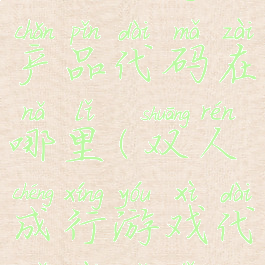 chǎn pǐn dài mǎ zài
产品代码在
nǎ lǐ shuāng rén
哪里(双人
chéng xíng yóu xì dài
成行游戏代